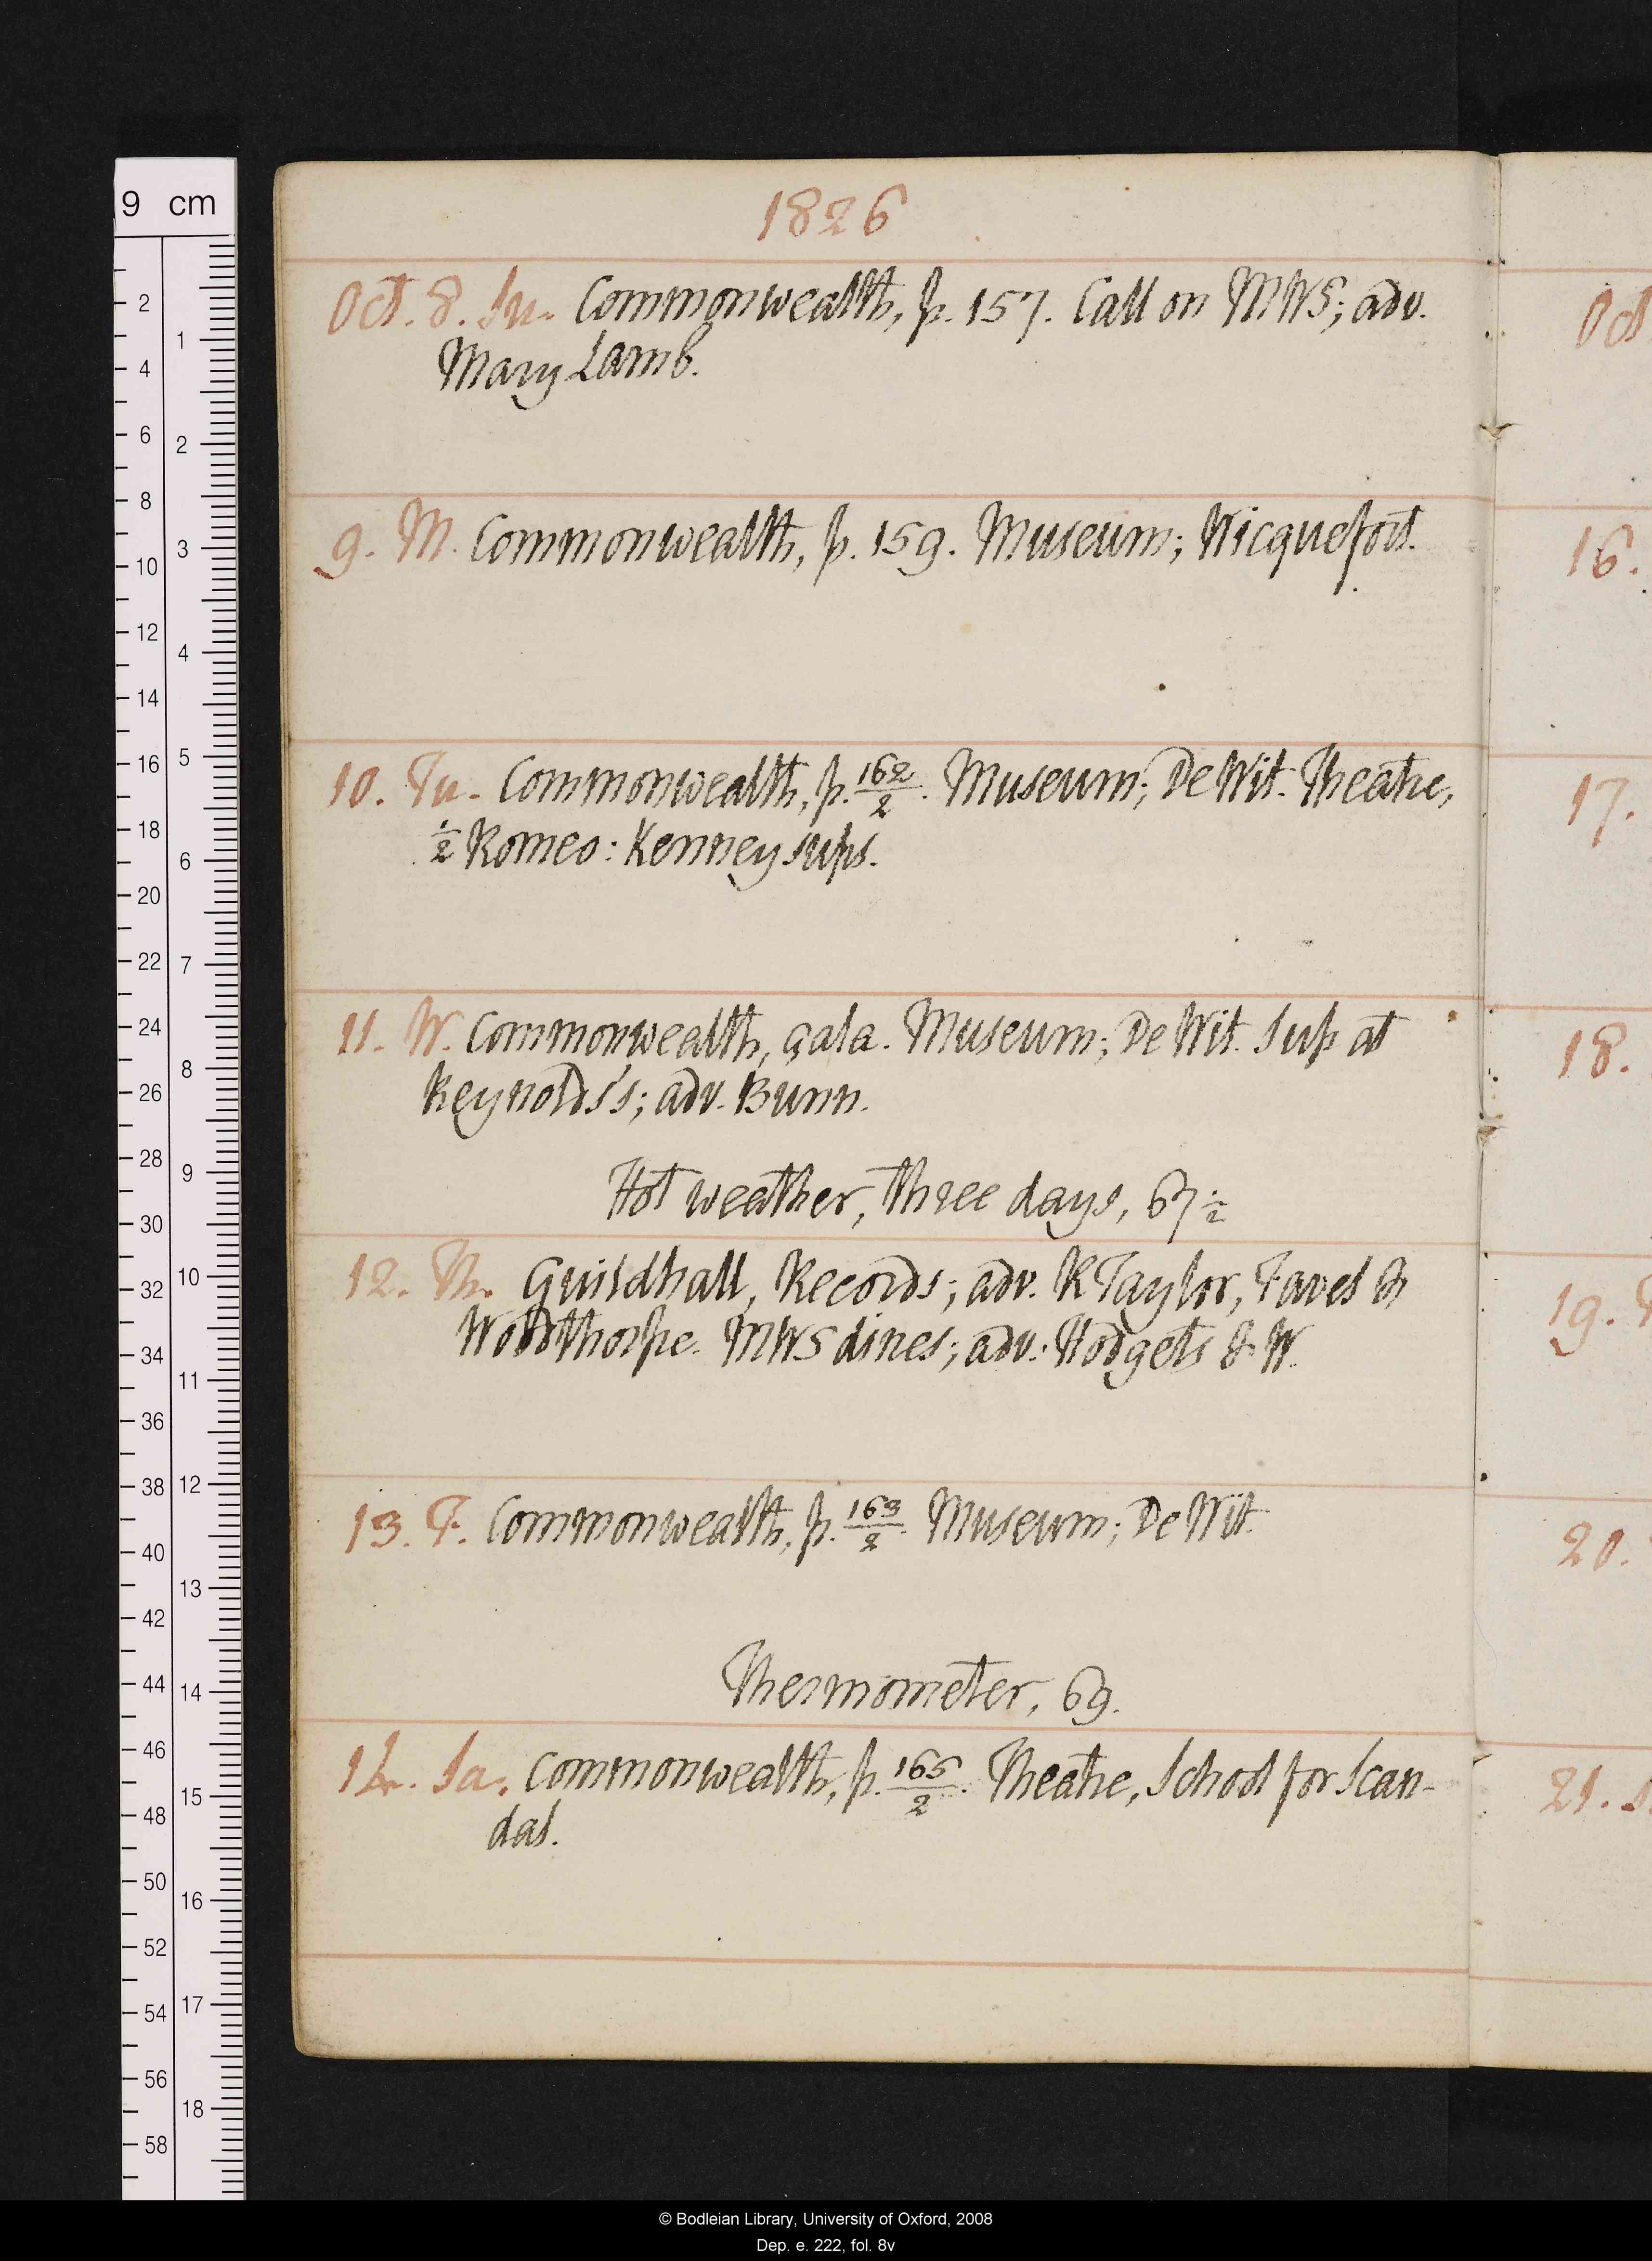 1826
Oct. 8. Su. Commonwealth, p. 157. Call on MWS; adv.
Mary Lamb.
9. M. Commonwealth, p. 159. Museum; Wicquefort.
10. Tu. Commonwealth, p. 162/2. Museum; De Wit. Theatre,
½ Romeo: Kenney sups.
11. W. Commonwealth, çala. Museum; De Wit. Sup at
Reynolds's; adv. Bunn.
Hot weather, three days, 67½
12. Th. Guildhall, Records; adv. R Taylor, Favel &
Woodthorpe. MWS dines; adv. Hodgets & W.
13. F. Commonwealth, p. 163/2. Museum; De Wit.
Thermometer, 69.
14. Sa. Commonwealth, p. 165/2. Theatre, School for Scan-
dal.
Oct
16.
17.
18.
19.
20.
21. S
9 cm
© Bodleian Library, University of Oxford, 2008
Dep. e. 222, fol. 8v